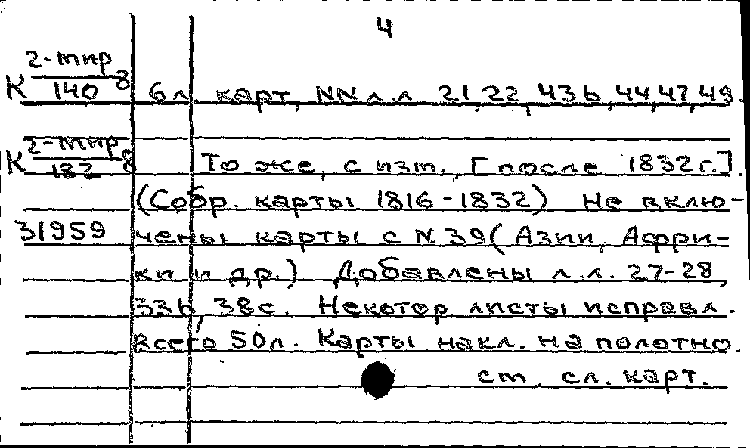 4
2-мир
К 140 8 6 л карт, NN л.л 21, 22, 43b, 44, 47, 49.
2-мир
К 182 8 То же, с изм., [после 1832г.].
(Собр. карты 1816-1832) Не вклю-
31959 чены карты с N 39 (Азии, Афри-
ки и др.) Добавлены л.л. 27-28,
33b, 38c. Некотор листы исправл.
Всего 50л. Карты накл. на полотно.
см. сл. карт.